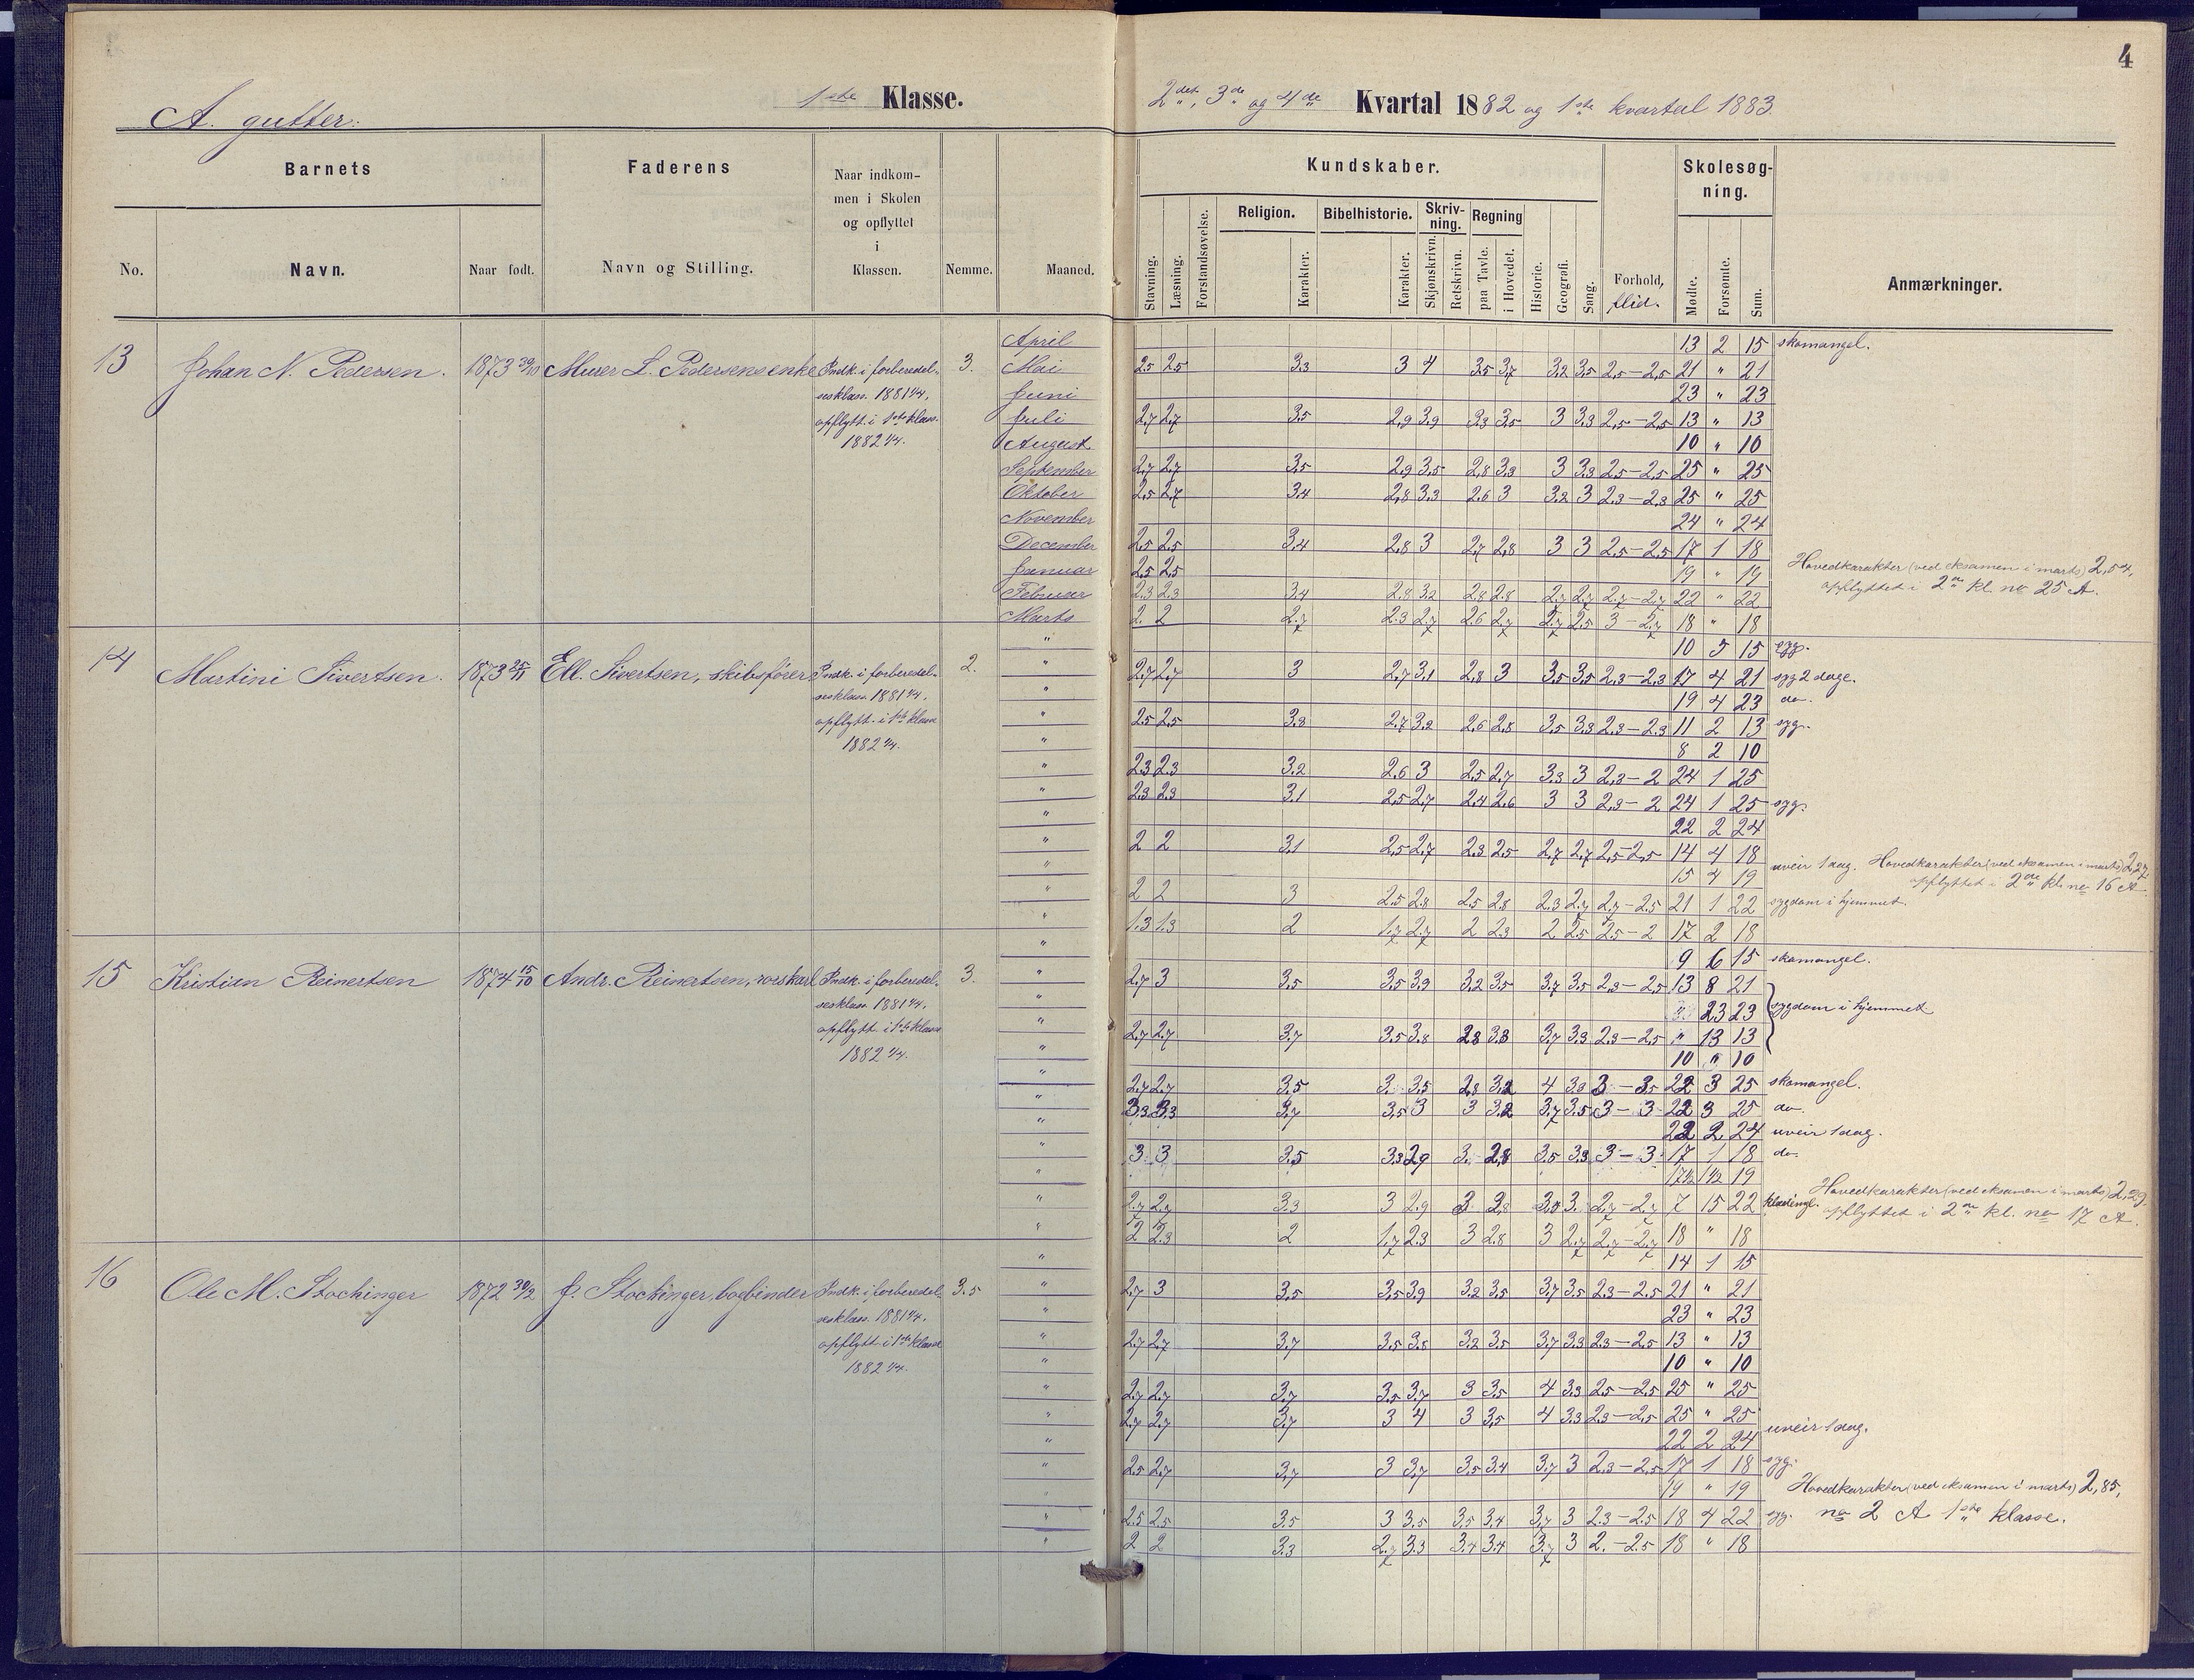 4
A. gutter:
1ste Klasse.
2det, 3de og 4de Kvartal 1882 og 1ste kvartal 1883.
Barnets
Faderens
Naar indkom-
men i Skolen
og opflyttet
i
Klassen.
No.
Navn.
Naar født.
Navn og Stilling.
Nemme.
Maaned.
Kundskaber.
Skolesøg-
ning.
Religion.
Bibelhistorie.
Skriv-
ning.
Regning
Stavning.
Læsning.
Forstandsøvelse.
Karakter.
Karakter.
Skjønskrivn.
Retskrivn.
paa Tavle.
i Hovedet.
Historie.
Geografi.
Sang.
Forhold,
flid.
Mødte.
Forsømte.
Sum.
Anmærkninger.
April 13 2 15 skomangel.
13 Johan N. Pedersen. 1873 30/10 Murer L. Pedersens enke Indk. i forberedel- 3. Mai 2,5 2,5 3,3 3 4 3,5 3,7 3,2 3,5 2,5–2,5 21 " 21
sesklass. 1881 1/4, Juni 23 " 23
opflytt. i 1ste klass. Juli 2,7 2,7 3,5 2,9 3,9 3,3 3,5 3 3,3 2,5–2,5 13 " 13
1882 1/4. August 10 " 10
September 2,7 2,7 3,5 2,9 3,5 2,8 3,3 3 3,3 2,5–2,5 25 " 25
Oktober 2,5 2,7 3,4 2,8 3,3 2,6 3 3,2 3 2,3–2,3 25 " 25
November 24 " 24
December 2,5 2,5 3,4 2,8 3 2,7 2,8 3 3 2,5–2,5 17 1 18
Januar 2,5 2,5 19 " 19 Hovedkarakter (ved eksamen i marts) 2,54,
Februar 2,3 2,3 3,4 2,8 3,2 2,8 2,8 2,7 2,7 2,7–2,7 22 " 22 opflyttet i 2den kl. no 25 A.
Marts 2. 2 2,7 2,3 2,7 2,6 2,7 2,7 2,5 3–2,7 18 " 18
" 10 5 15 syg.
14 Martini Sivertsen. 1873 25/11 Ell. Sivertsen, skibsfører Indk. i forberedel- 2. " 2,7 2,7 3 2,7 3,1 2,8 3 3,5 3,5 2,3–2,3 17 4 21 syg 2 dage.
sesklass. 1881 1/4, " 19 4 23 do.
opflytt. i 1ste klasse " 2,5 2,5 3,3 2,7 3,2 2,6 2,8 3,5 3,3 2,3–2,3 11 2 13 syg.
1882 1/4. " 8 2 10
" 2,3 2,3 3,2 2,6 3 2,5 2,7 3,3 3 2,3–2 24 1 25
" 2,3 2,3 3,1 2,5 2,7 2,4 2,6 3 3 2,3–2 24 1 25 syg.
" 22 2 24
" 2 2 3,1 2,5 2,7 2,3 2,5 2,7 2,7 2,5–2,5 14 4 18
" 15 4 19 uveir 1 dag. Hovedkarakter (ved eksamen i marts) 2,27,
opflyttet i 2den kl. no 16 A
" 2 2 3 2,5 2,8 2,5 2,8 2,3 2,7 2,7–2,5 21 1 22 sygdom i hjemmet.
" 1,3 1,3 2 1,7 2,7 2 2,3 2 2,5 2,5–2 17 2 18
" 9 6 15 skomangel.
15 Kristian Reinertsen 1874 15/10 Andr. Reinertsen, Indk. i forberedel- 3. " 2,7 3 3,5 3,5 3,9 3,2 3,5 3,7 3,5 2,3–2,5 13 8 21
sesklass. 1881 1/4, " 23 23 sygdom i hjemmet
opflytt. i 1ste klasse " 2,7 2,7 3,7 3,5 3,8 2,8 3,3 3,7 3,3 2,3–2,5 " 13 13
1882 1/4. " 10 " 10
" 2,7 2,7 3,5 3 3,5 2,8 3,2 4 3,3 3–3,5 22 3 25 skomangel.
" 3,3 3,3 3,7 3,5 3 3 3,2 3,7 3,5 3–3 22 3 25 do.
" 22 2 24 uveir 1 dag.
" 3 3 3,5 3,3 2,9 3. 2,8 3,5 3,3 3–3 17 1 18 do.
" 17½ 1½ 19
" 2,7 2,7 3,3 3 2,9 3 2,8 3,3 3. 2,7–2,7 7 15 22 Hovedkarakter (ved eksamen i marts) 2,29,
opflyttet i 2den kl. no 17 A.
" 2 2,3 2 1,7 2,3 3 2,8 3 2,7 2,7–2,7 18 " 18
" 14 1 15
16 Ole M. Stochinger 1872 30/2 J. Stochinger, bogbinder Indk. i forberedel- 3.5 " 2,7 3 3,5 3,5 3,9 3,2 3,5 3,7 3,5 2,3–2,5 21 " 21
sesklass. 1881 1/4, " 23 " 23
opflytt. i 1ste klasse " 2,7 2,7 3,7 3,5 3,8 3,2 3,5 3,7 3,3 2,3–2,5 13 " 13
1882 1/4. " 10 " 10
" 2,7 2,7 3,7 3,5 3,7 3 3,5 4 3,3 2,5–2,5 25 " 25
" 2,7 2,7 3,7 3 4 3 3,5 4 3,3 2,3–2,5 25 " 25
" 22 2 24 uveir 1 dag.
" 2,5 2,7 3,7 3 3,7 3,5 3,4 3,7 3 2,3–2,5 17 1 18 syg.
" 19 " 19 Hovedkarakter (ved eksamen i marts) 2,85,
" 2,5 2,5 3,5 3 3,5 3,5 3,4 3,7 3 2,3–2,5 18 4 22 syg. no 2 A 1ste klasse.
" 2 2 3,3 2,7 3,3 3,4 3,4 3,7 3 2.–2,5 18 " 18